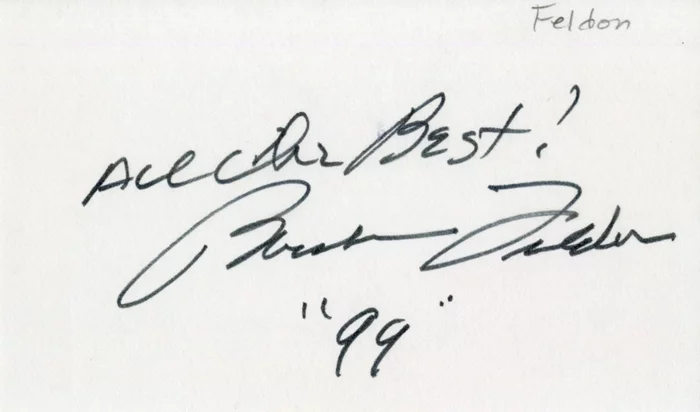 Feldon
All The Best!
Barbara Feldon
"99"